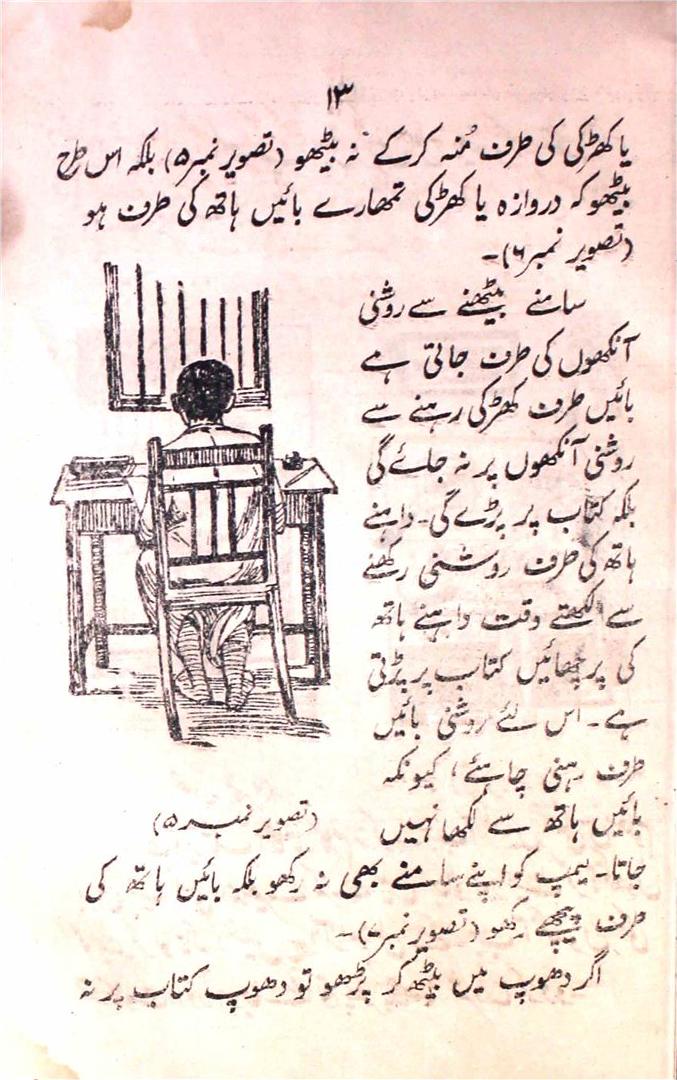 ۱۳
یا کھڑکی کی طرف مُنہ کرکے نہ بیٹھو (تصویر نمبر ۵) بلکہ اس طرح
بیٹھو کہ دروازہ یا کھڑکی تمھارے بائیں ہاتھ کی طرف ہو
(تصویر نمبر ۶)۔
سامنے بیٹھنے سے روشنی
آنکھوں کی طرف جاتی ہے
بائیں طرف کھڑکی رہنے سے
روشنی آنکھوں پر نہ جائے گی
بلکہ کتاب پر پڑے گی۔ داہنے
ہاتھ کی طرف روشنی رکھنے
سے لکھتے وقت داہنے ہاتھ
کی پرچھائیں کتاب پر پڑتی
ہے۔ اس لئے روشنی بائیں
طرف رہنی چاہئے، کیونکہ
بائیں ہاتھ سے لکھا نہیں
(تصویر نمبر ۵)
جاتا۔ لیمپ کو اپنے سامنے بھی نہ رکھو بلکہ بائیں ہاتھ کی
طرف پیچھے رکھو (تصویر نمبر ۷)۔
اگر دھوپ میں بیٹھ کر پڑھو تو دھوپ کتاب پر نہ